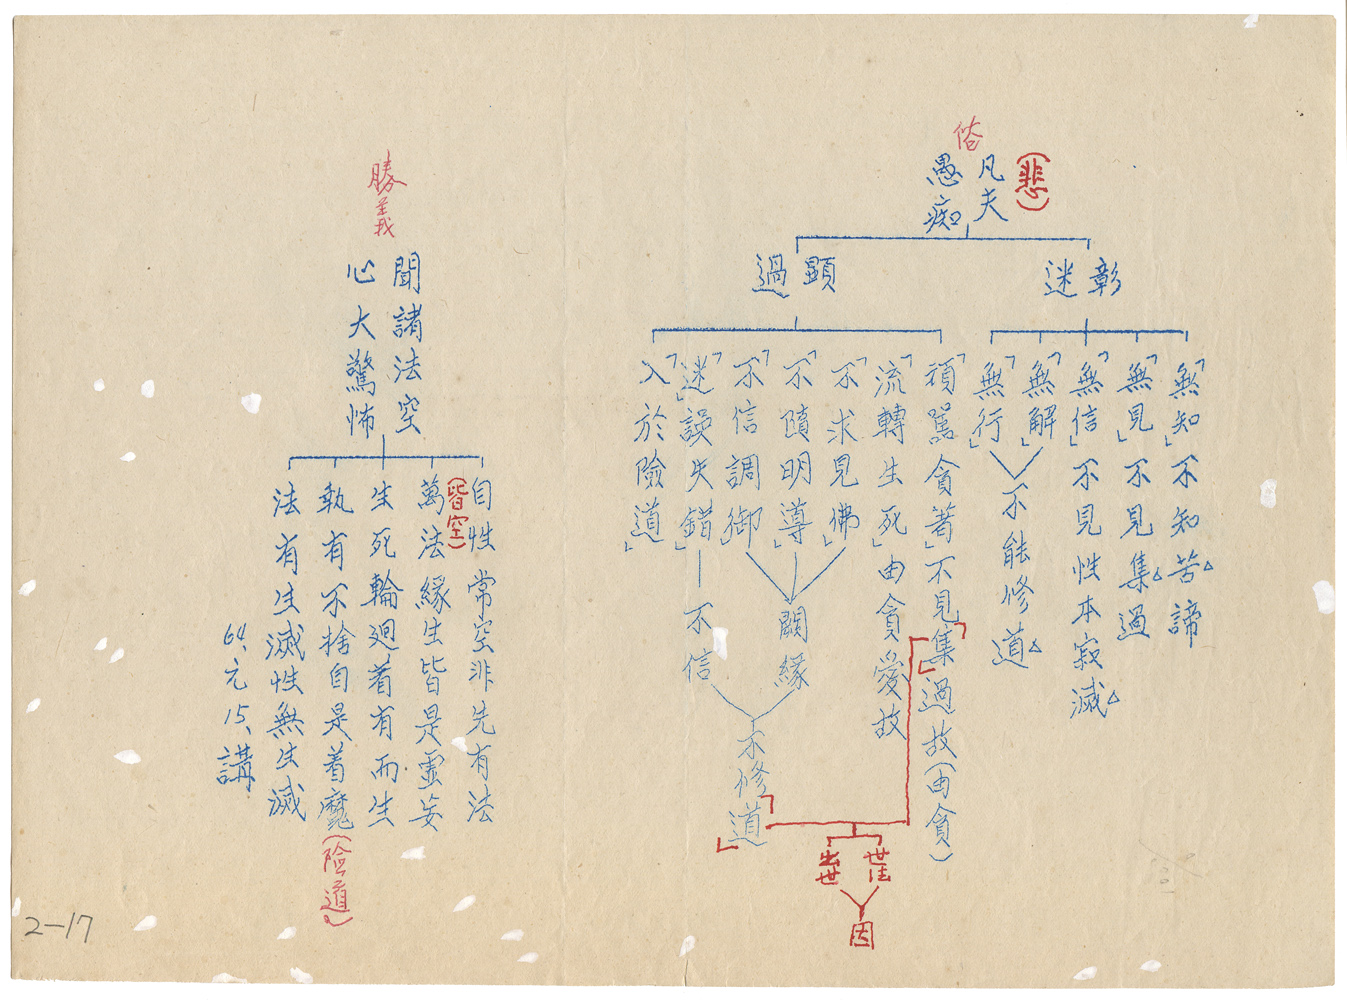 (悲)
俗
凡夫
愚痴
彰迷
「無知」不知苦諦
「無見」不見集過
「無信」不見性本寂滅
「無解」
「無行」
不能修道
顯過
「頑駡貪著」不見「集」過故(由貪)
「流轉生死」由貪愛故
「不求見佛」
「不隨明導」
「不信調御」
闕緣
「迷」誤失錯」
不信
「入於險道」
不修「道」
世法
出世
因
勝義
聞諸法空
心大驚怖
自性常空非先有法
(皆空)
萬法緣生皆是虛妄
生死輪迴着有而生
執有不捨自是着魔(險道)
法有生滅性無生滅
64、元15、講
2-17